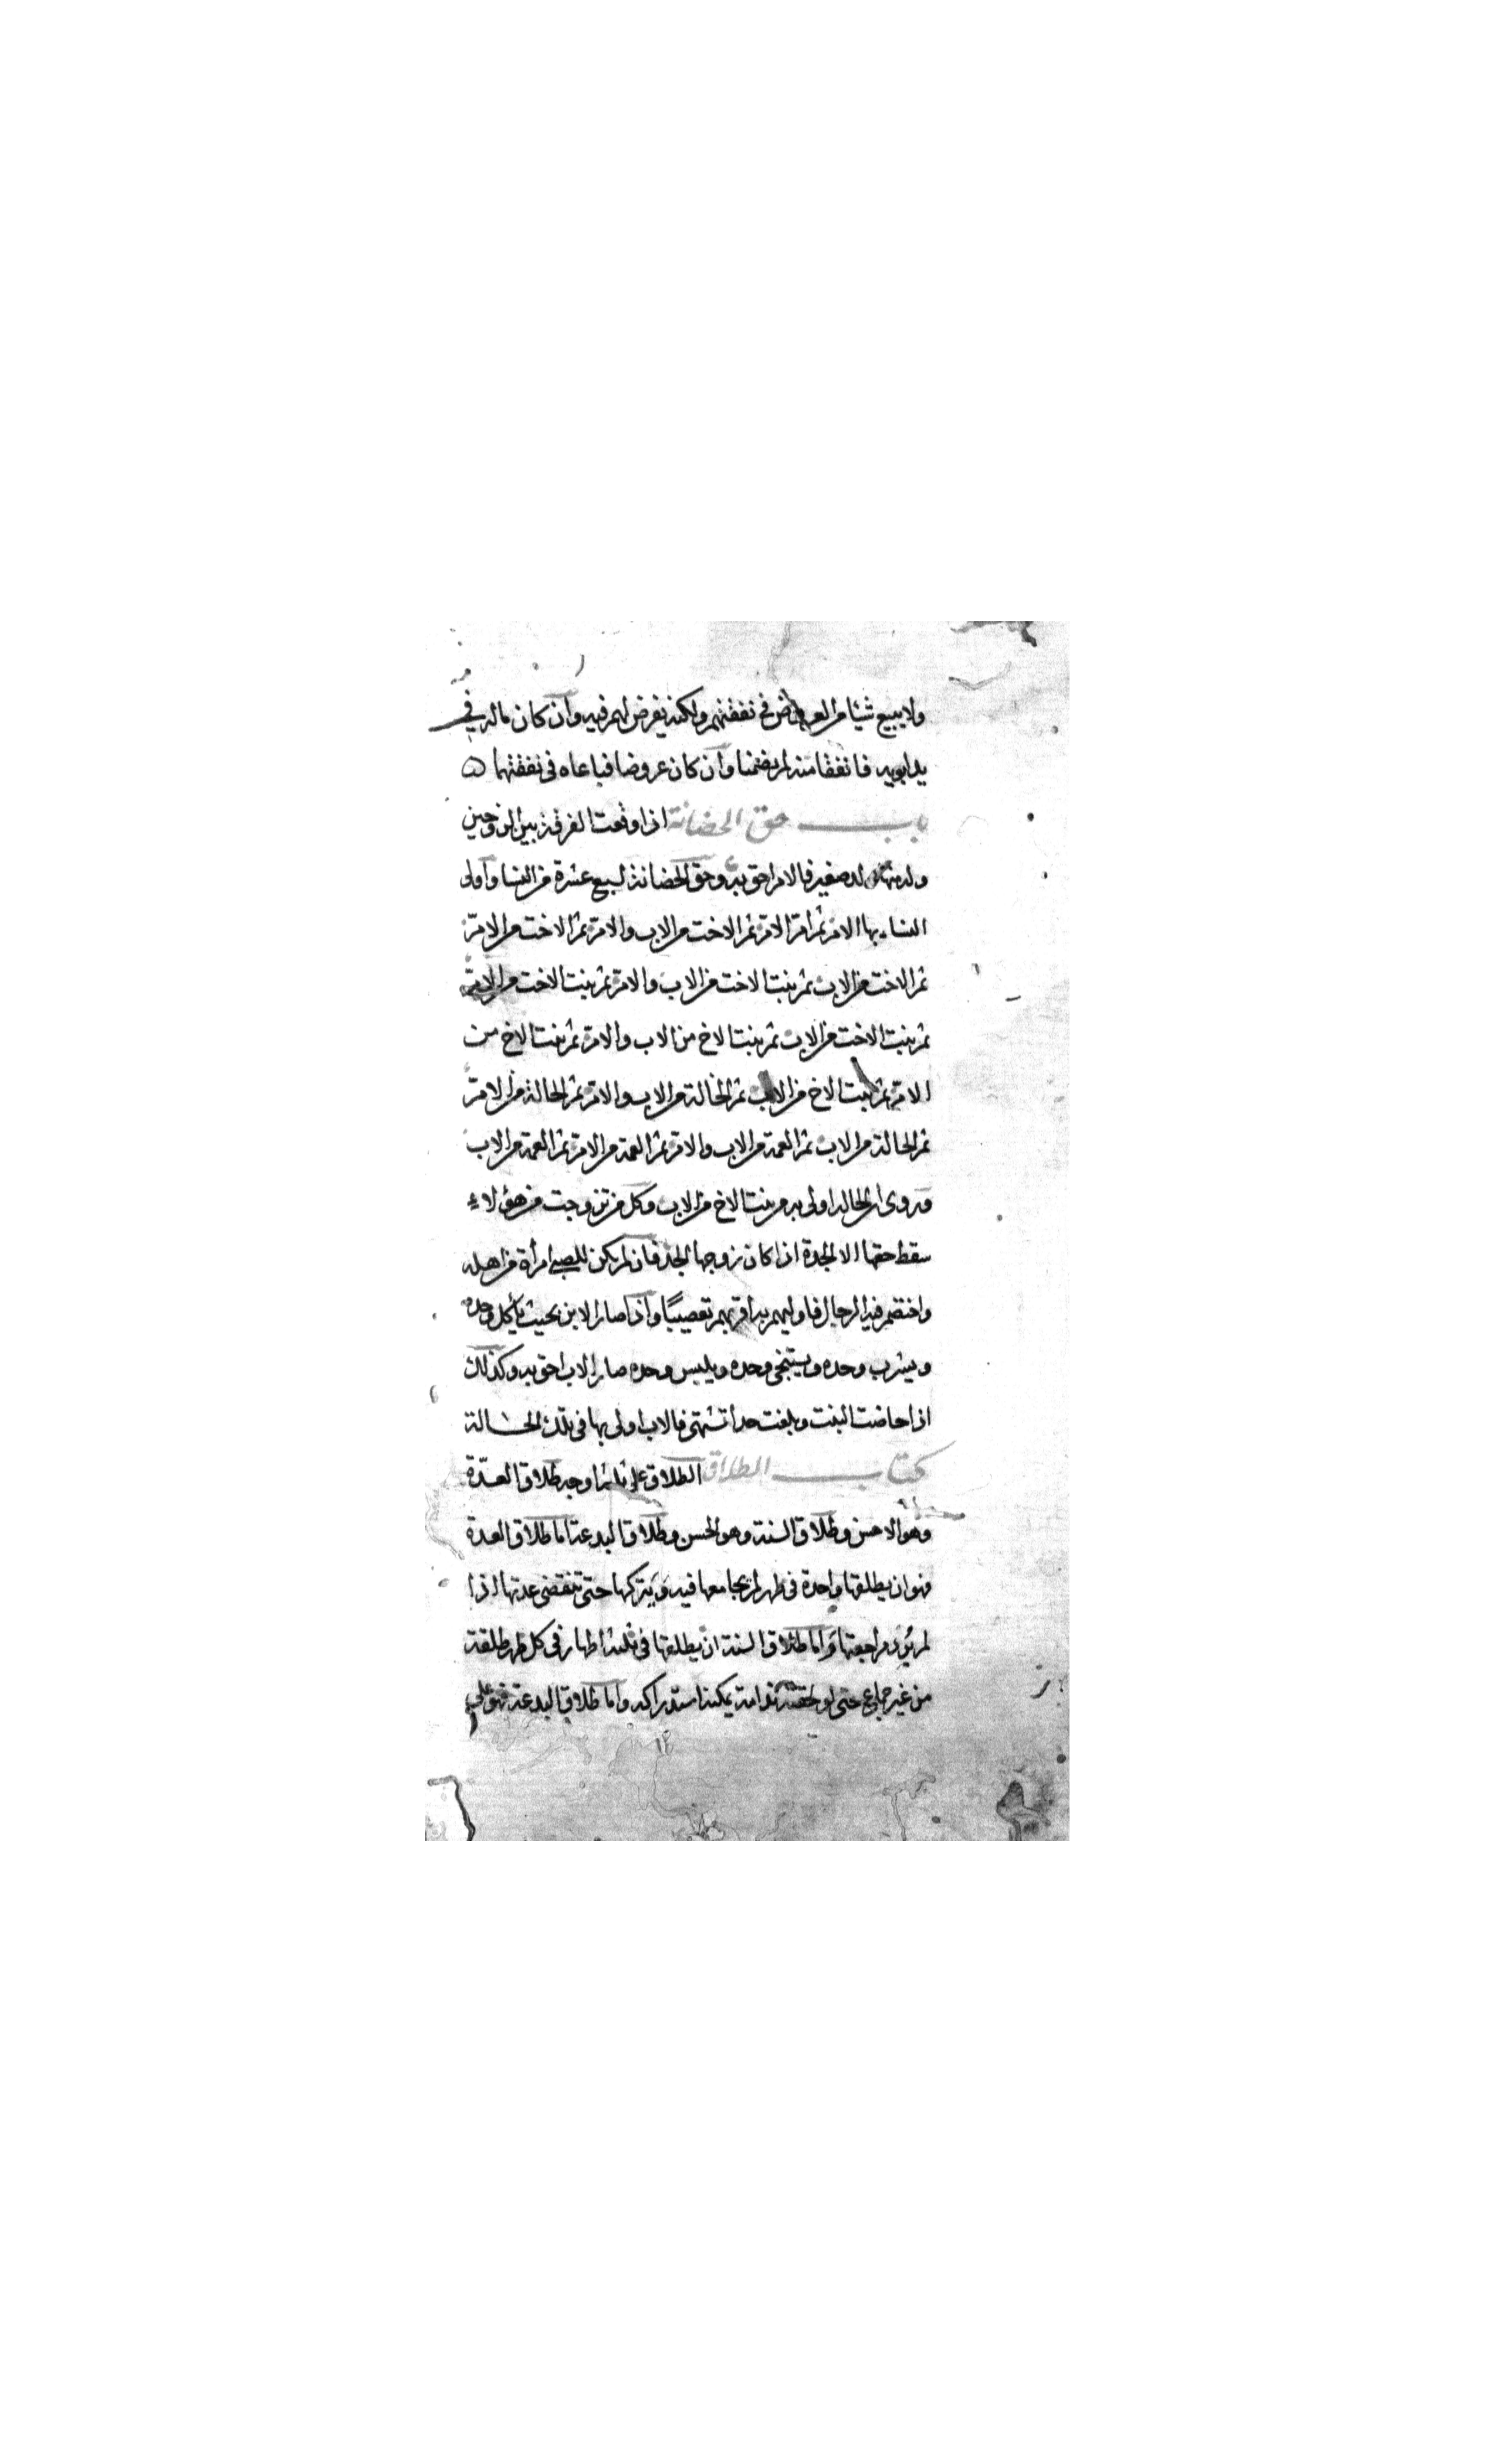 ولا يبيع شيئا من العروض في نفقتهم ولكنه يفرض لهم فيه وان كان ماله في
يد ابويه فانفقا منه لم يضمنا وان كان عروضا فباعاه في نفقتهما ه
باب حق الحضانة اذا وقعت الفرقة بين الزوجين
وله منها ولد صغير فالام احق به وحق الحضانة لسبع عشرة من النسا واولى
النساء بها الام ثم ام الام ثم الاخت من الاب والام ثم الاخت من الام
ثم الاخت من الاب ثم بنت الاخت من الاب والام ثم بنت الاخت من الام
ثم بنت الاخت من الاب ثم بنت الاخ من الاب والام ثم بنت الاخ من
الام ثم بنت الاخ من الاب ثم الخالة من الاب والام ثم الخالة من الام
ثم الخالة من الاب ثم العمة من الاب والام ثم العمة من الام ثم العمة من الاب
وروى ان الخالة اولى به من بنت الاخ من الاب وكل من تزوجت من هؤلاء
سقط حقها الا الجدة اذا كان زوجها الجد فان لم يكن للصبي امرأة من اهله
واختصم فيه الرجال فاوليهم به اقربهم تعصيبًا واذا صار الابن بحيث يأكل وحده
ويشرب وحده ويستنجى وحده ويلبس وحده صار الاب احق به وكذلك
اذا حاضت البنت وبلغت حدا تشتهى فالاب اولى بها فى تلك الحالة
كتاب الطلاق الطلاق على ثلثة اوجه طلاق العدّة
وهو الاحسن وطلاق السنة وهو الحسن وطلاق البدعة اما طلاق العدة
فهو ان يطلقها واحدة فى طهر لم يجامعها فيه ويتركها حتى تنقضى عدتها اذا
لم يُرِد مراجعتها واما طلاق السنة ان يطلقها فى ثلثة اطهار فى كل طهر طلقة
من غير جماع حتى لو لحقته ندامة يمكنه استدراكه واما طلاق البدعة فهو على